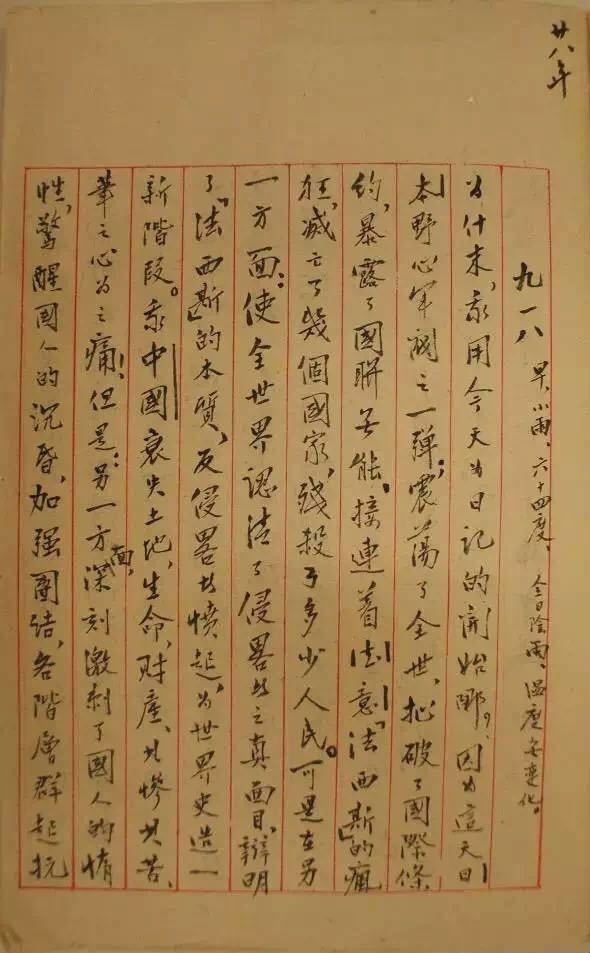 廿八年
九一八 早，小雨，六十四度， 全日陰雨，温度無变化。
为什末，我用今天为日記的開始哪？因为這天日
本野心军阀之一弹；震荡了全世，扯破了國際條
约，暴露了國聯無能，接連着德意「法西斯」的瘋
狂，滅亡了幾個國家，残殺了多少人民。可是在另
一方面：使全世界認清了侵畧者之真面目，辯明
了「法西斯」的本質，反侵畧者愤起，为世界史造一
新階段。我中國衰失土地，生命，財產，其惨其苦、
筆之心为之痛！但是：另一方面，深刻激刺了國人的惰
性，驚醒國人的沉昏，加强團结，各階層群起抗